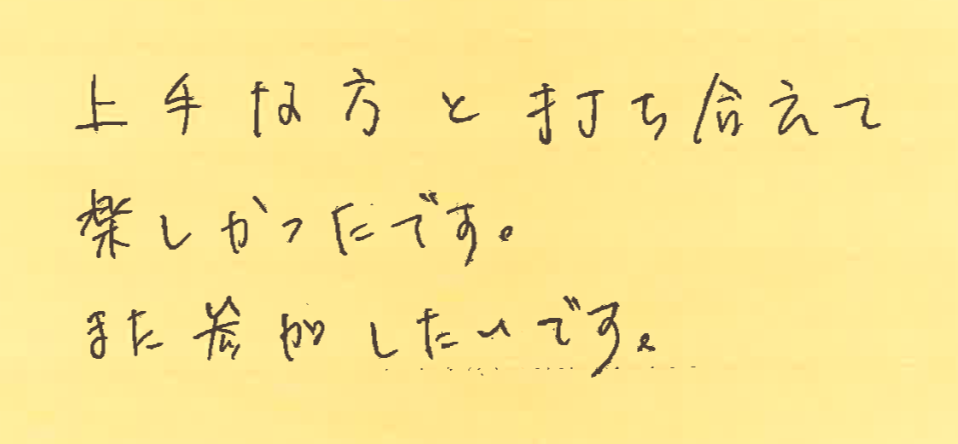 上手な方と打ち合えて
楽しかったです。
また参加したいです。